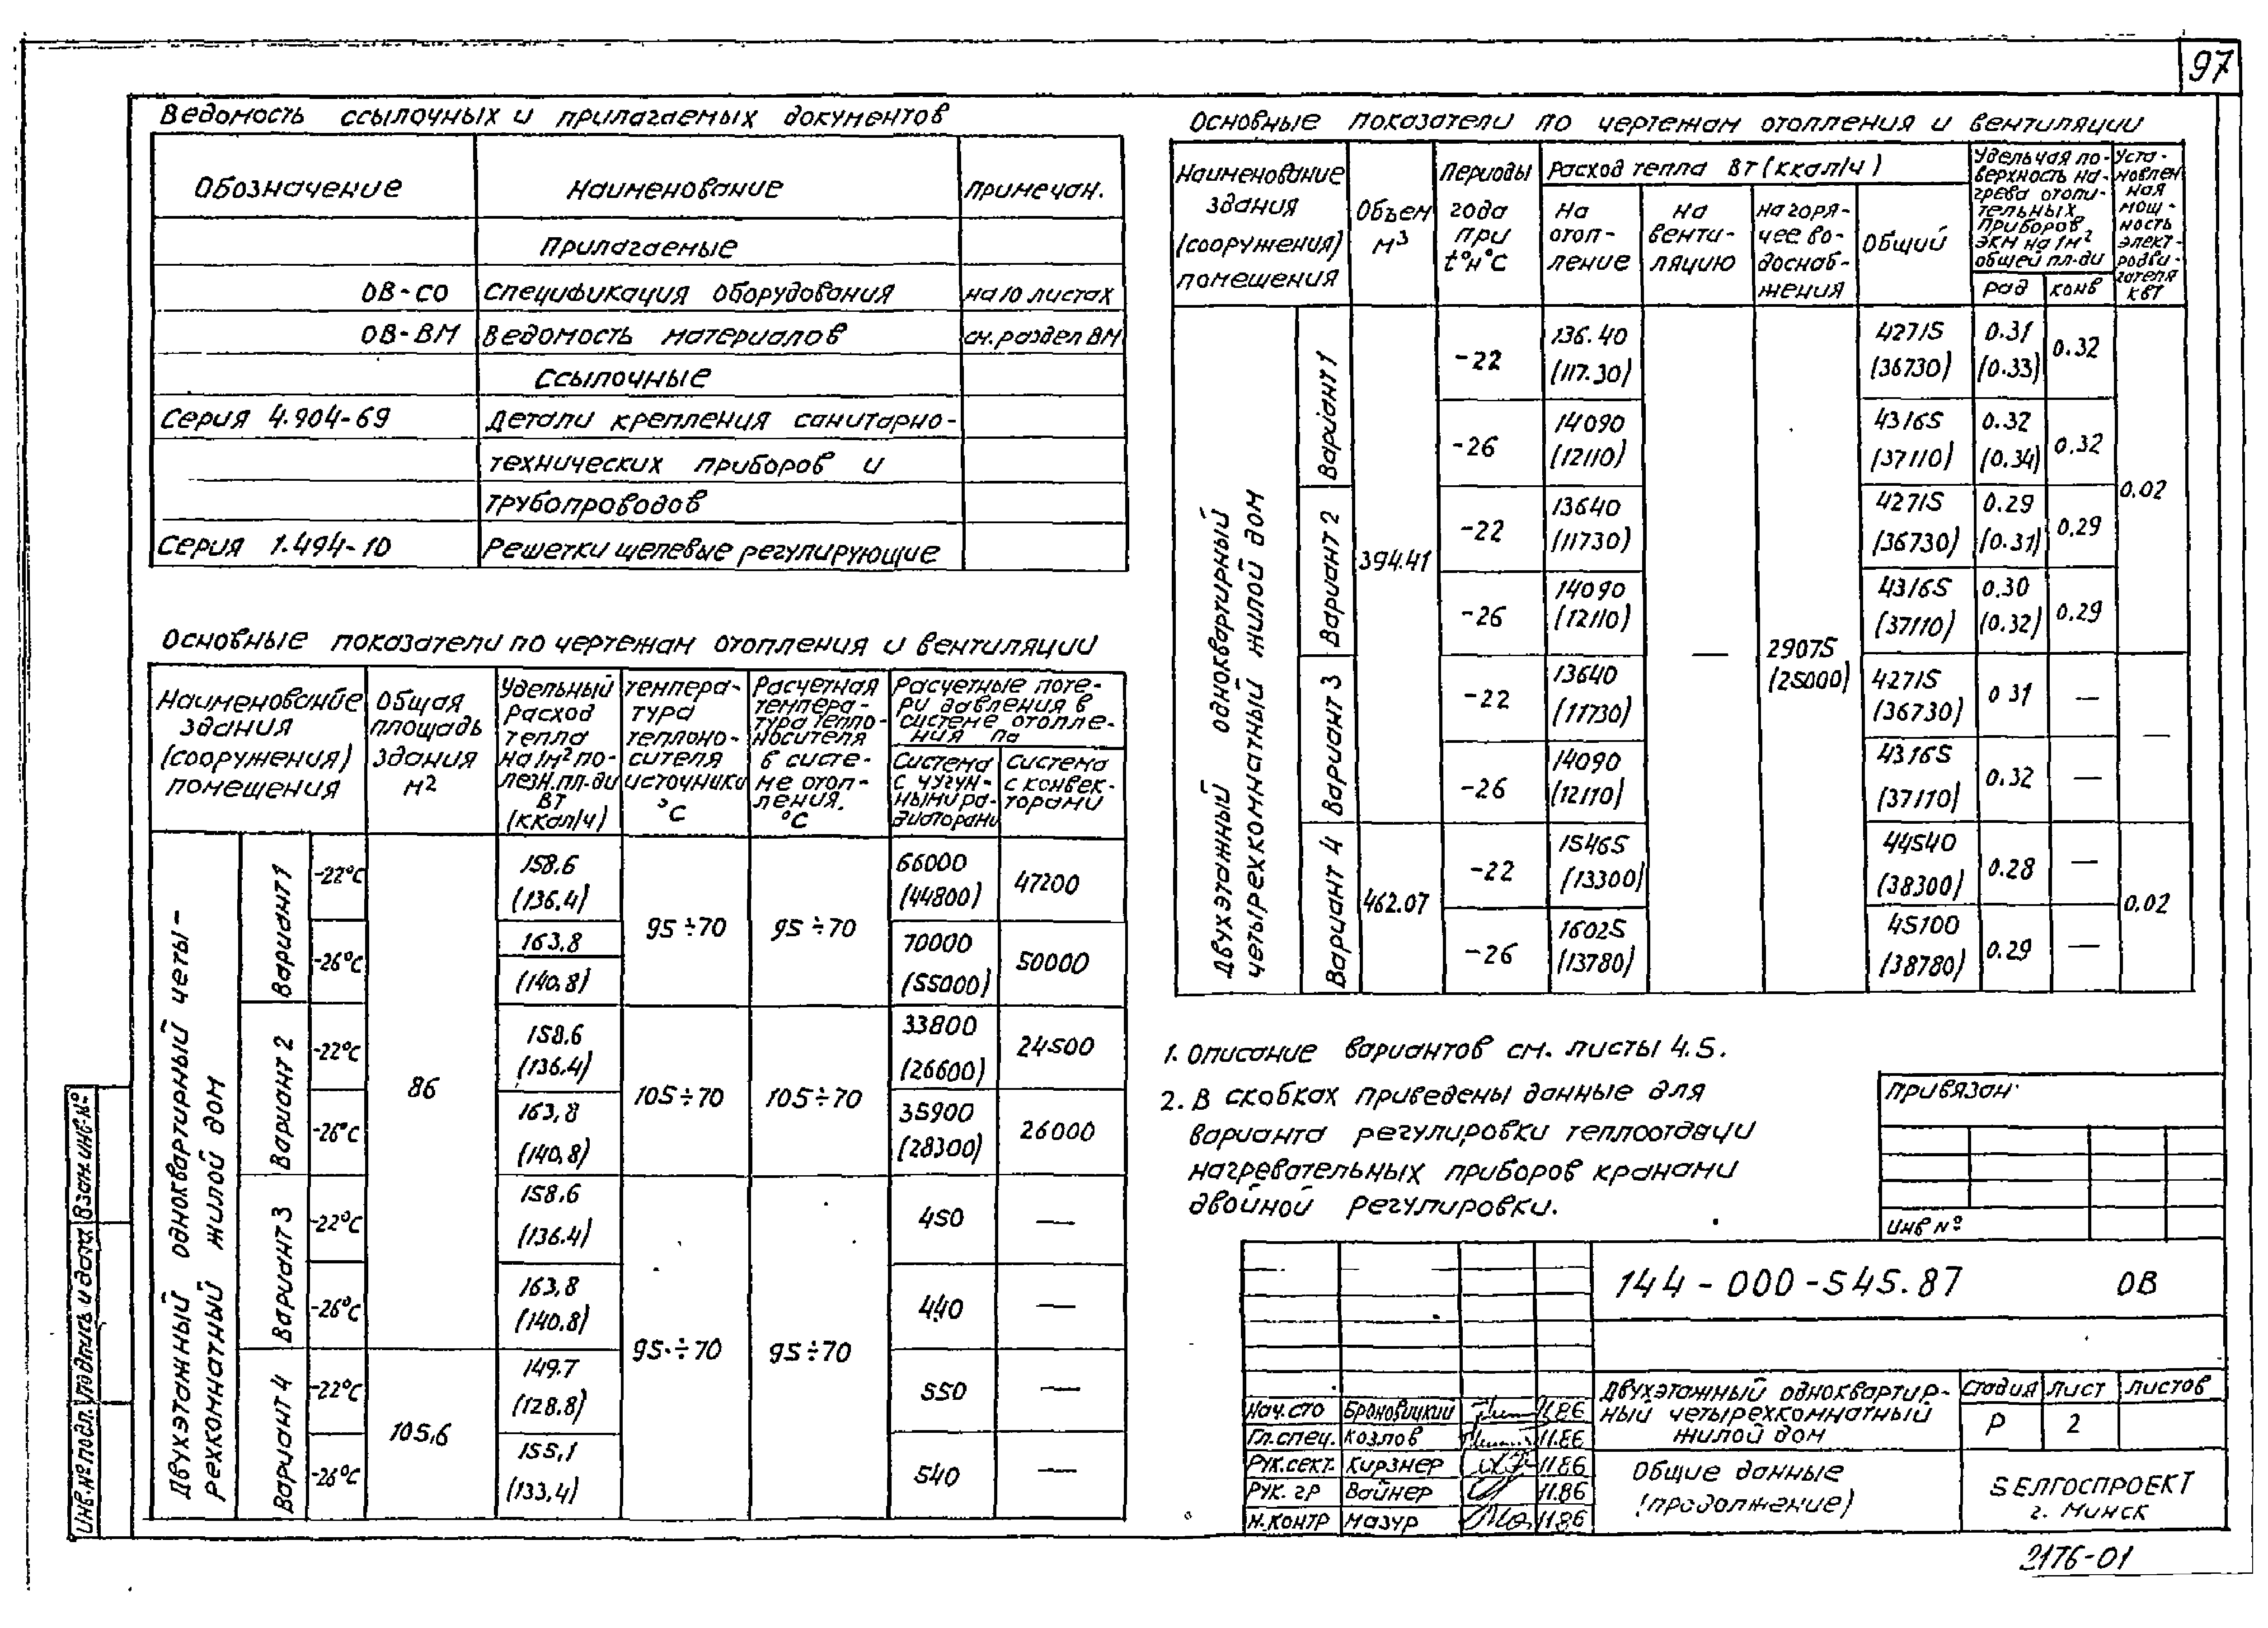 97
Ведомость ссылочных и прилагаемых документов
Обозначение Наименование Примечан.
Прилагаемые
ОВ-СО Спецификация оборудования на 10 листах
ОВ-ВМ Ведомость материалов см. раздел ВМ
Ссылочные
Серия 4.904-69 Детали крепления санитарно-
технических приборов и
трубопроводов
Серия 1.494-10 Решетки щелевые регулирующие
Основные показатели по чертежам отопления и вентиляции
Наименование здания (сооружения) помещения
Общая площадь здания м²
Удельный расход тепла на 1м² полезн. пл-ди Вт (ккал/ч)
температура теплоносителя источника °С
Расчетная температура теплоносителя в системе отопления. °С
Расчетные потери давления в системе отопления Па
Система с чугунными радиаторами
Система с конвекторами
Двухэтажный одноквартирный четырехкомнатный жилой дом
Вариант 1 -22°С 86 158.6 (136.4) 95÷70 95÷70 66000 (44800) 47200
-26°С 163.8 (140.8) 70000 (55000) 50000
Вариант 2 -22°С 158.6 (136.4) 105÷70 105÷70 33800 (26600) 24500
-26°С 163,8 (140,8) 35900 (28300) 26000
Вариант 3 -22°С 158.6 (136.4) 95÷70 95÷70 450 —
-26°С 163,8 (140.8) 440 —
Вариант 4 -22°С 105,6 149.7 (128.8) 550 —
-26°С 155,1 (133,4) 540 —
Основные показатели по чертежам отопления и вентиляции
Наименование здания (сооружения) помещения
Объем м³
Периоды года при t°н°С
Расход тепла Вт (ккал/ч)
На отопление
на вентиляцию
на горячее водоснабжения
Общий
Удельная поверхность нагрева отопительных приборов ЭКМ на 1м² общей пл-ди
рад конв
Установленная мощность электродвигателя кВт
Двухэтажный одноквартирный четырехкомнатный жилой дом
Вариант 1 394.41 -22 136.40 (117.30) — 29075 (25000) 42715 (36730) 0.31 (0.33) 0.32 0.02
-26 14090 (12110) 43165 (37110) 0.32 (0.34) 0.32
Вариант 2 -22 13640 (11730) 42715 (36730) 0.29 (0.31) 0.29
-26 14090 (12110) 43165 (37110) 0.30 (0.32) 0.29
Вариант 3 -22 13640 (11730) 42715 (36730) 0 31 — —
-26 14090 (12110) 43165 (37110) 0.32 —
Вариант 4 462.07 -22 15465 (13300) 44540 (38300) 0.28 — 0.02
-26 16025 (13780) 45100 (38780) 0.29 —
1. Описание вариантов см. листы 4.5.
2. В скобках приведены данные для
варианта регулировки теплоотдачи
нагревательных приборов кранами
двойной регулировки.
Привязан:
Инв №
144-000-545.87 ОВ
Нач. СТО Броновицкий 11.86
Гл. спец. Козлов 11.86
Рук. сект. Кирзнер 11.86
Рук. гр Вайнер 11.86
Н. контр Мазур 11.86
Двухэтажный одноквартир-
ный четырехкомнатный
жилой дом
Стадия Лист Листов
Р 2
Общие данные
(продолжение)
БЕЛГОСПРОЕКТ
г. Минск
Инв. № подл. Подпись и дата Взам. инв. №
2176-01